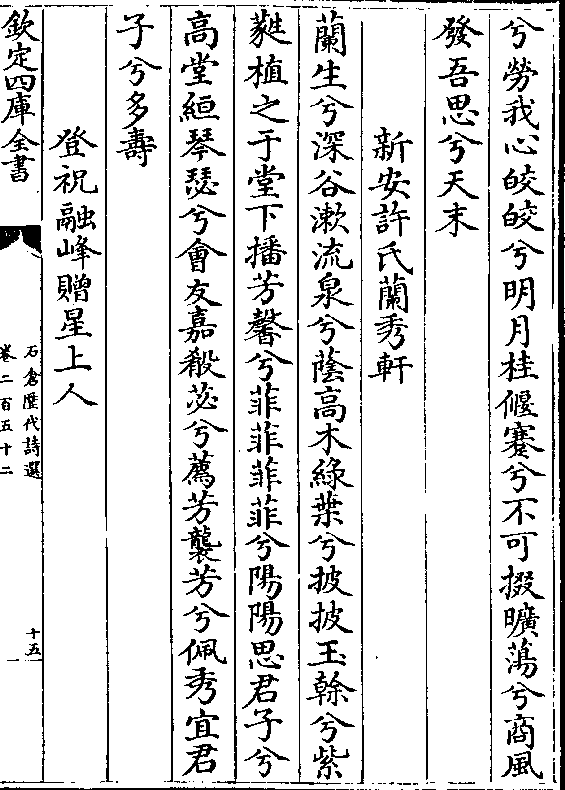 兮勞我心皎皎兮明月桂偃蹇兮不可掇曠蕩兮商風
發吾思兮天末
新安許氏蘭秀軒
蘭生兮深谷漱流泉兮蔭高木緑葉兮披披玉榦兮紫
蕤植之于堂下播芳馨兮菲菲菲菲兮陽陽思君子兮
高堂絙琴瑟兮會友嘉殽苾兮薦芳襲芳兮佩秀宜君
子兮多壽
登祝融峰贈星上人
欽定四庫全書
石倉歴代詩選
卷二百五十二
十五